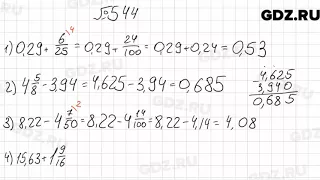 GDZ.RU
№544
1) 0,29 + 6/25 \4 = 0,29 + 24/100 = 0,29 + 0,24 = 0,53
2) 4 5/8 - 3,94 = 4,625 - 3,94 = 0,685
- 4,625
3,940
0,685
3) 8,22 - 4 7/50 \2 = 8,22 - 4 14/100 = 8,22 - 4,14 = 4,08
4) 15,63 + 1 9/16